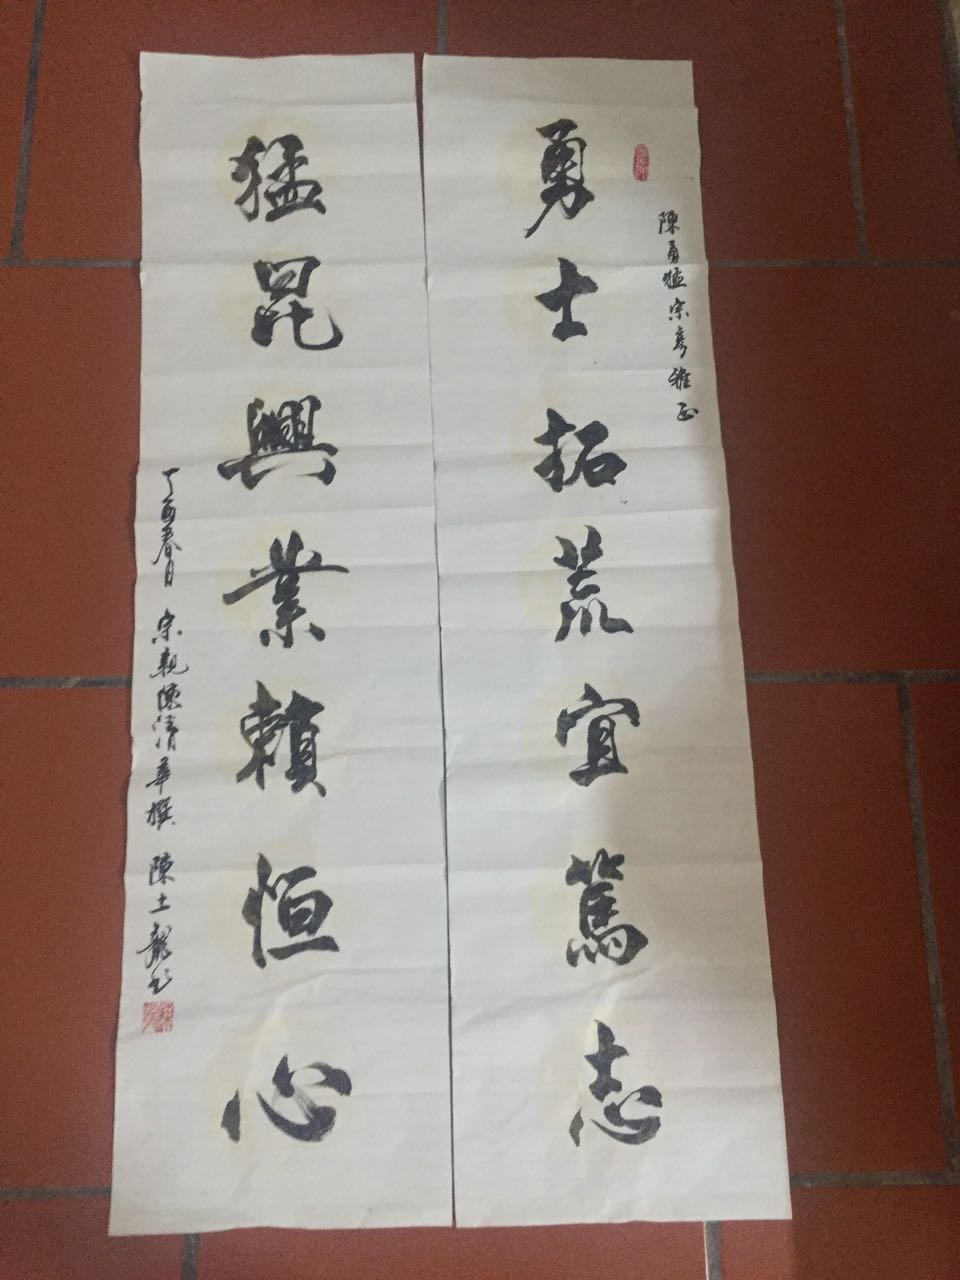 陳勇猛宗彥雅正
勇士拓荒宜篤志
猛昆興業賴恒心
丁酉春日 宗親陳清華撰 陳士龍書